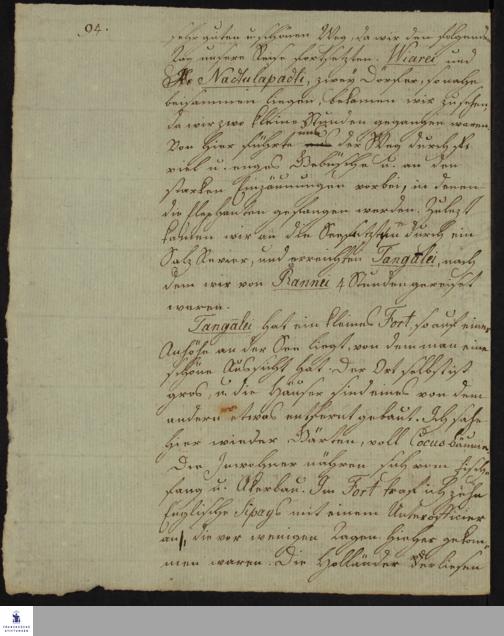 94.
sehr guten u. schönen Weg, da wir den folgenden
Tag unsere Reise fortsetzten. Wiarei und
Nadulapadti, zweÿ Dörfer, so nahe
beisammen liegen, bekamen wir zu sehen,
da wir zwo kleine Stunden gegangen waren.
Von hier führte uns der Weg durch sehr
viel u. enges Gebüsche u. an den
starken Umzäunungen vorbei, in denen
die Elephanten gefangen werden. Zulezt
kamen wir an die See, durch ein
Salz Revier, und erreichten Tangālei, nach
dem wir von Rannei 4 Stunden gereiset
waren.
Tangālei hat ein kleines Fort, so auf einer
Anhöhe an der See liegt, von dem man eine
schöne Aussicht hat. Der Ort selbst ist
gros, u. die Häuser sind eines von dem
andern etwas entfernt gebaut. Ich sahe
hier wieder Gärten, voll Cocusbäume.
Die Inwohner nähren sich vom Fisch
fang u. Akerbau. Im Fort traf ich zehn
Englische Sipays mit einem Unterofficier
an, die vor wenigen Tagen hieher gekom
men waren. Die Holländer verliesen
FRANCKESCHE STIFTUNGEN